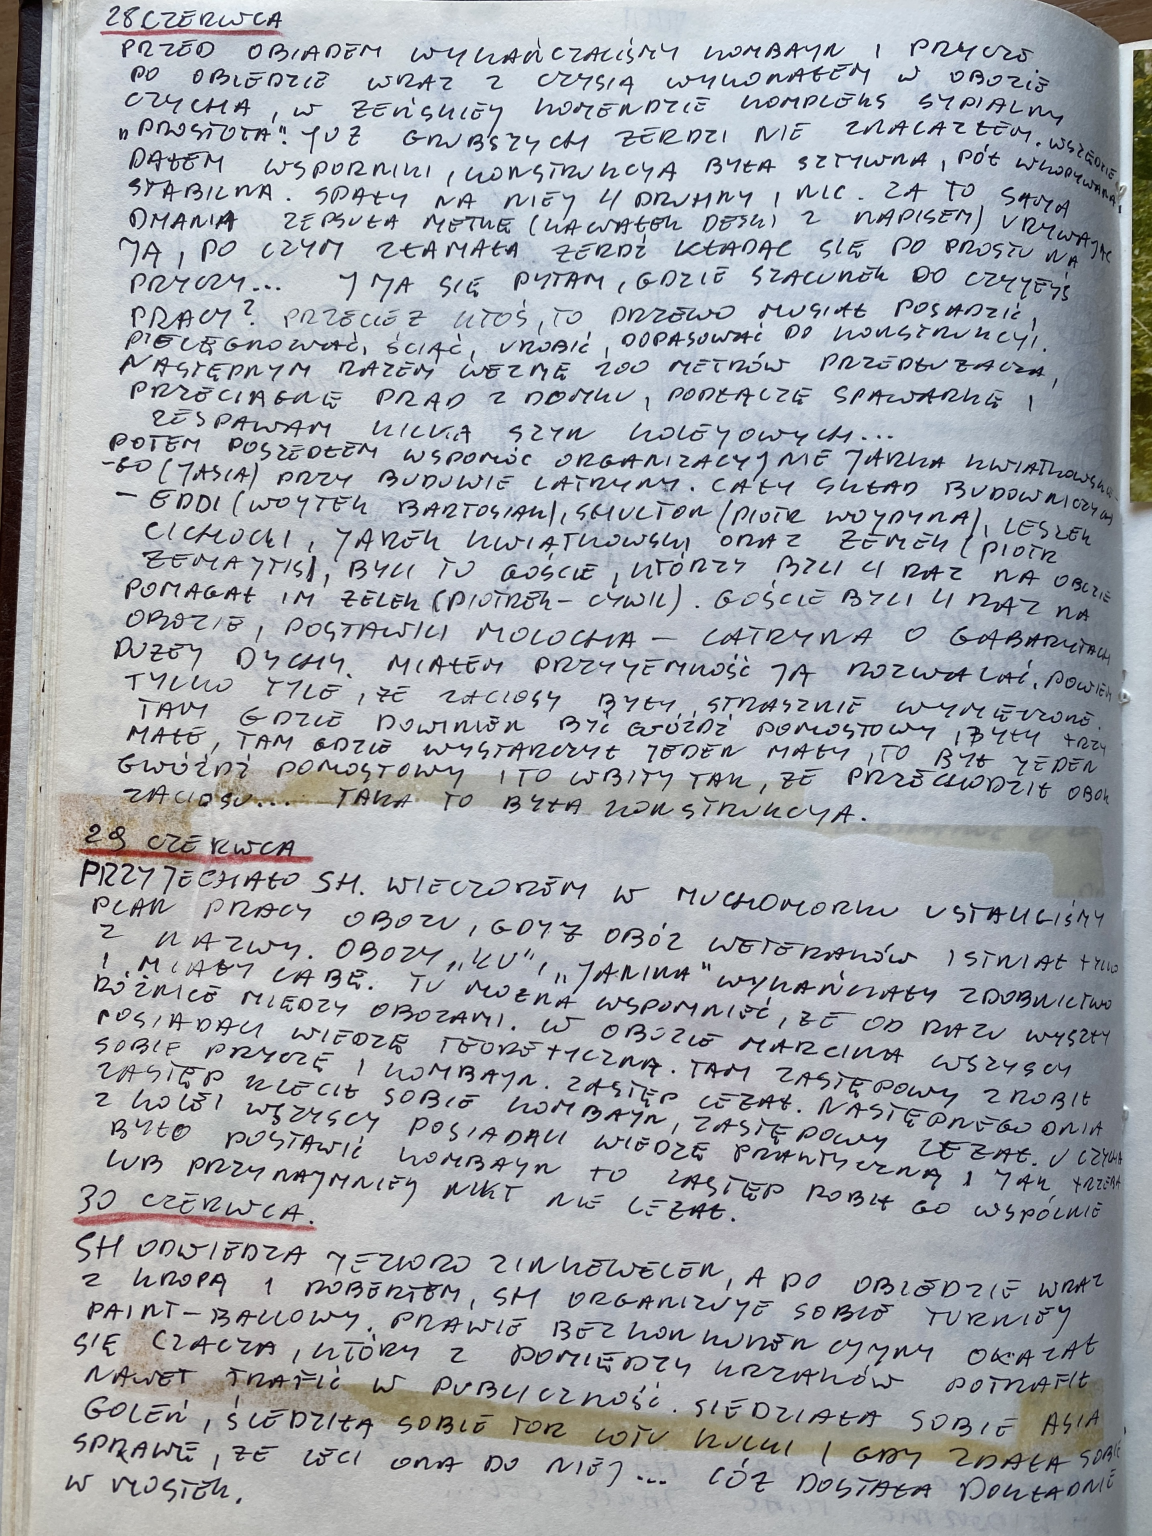 28 CZERWCA
PRZED OBIADEM WYKAŃCZALIŚMY KOMBAYN I PRYCZE
PO OBIEDZIE WRAZ Z CZYSIĄ WYKONAŁEM W OBOZIE
CZYCHA, W ŻEŃSKIEY KOMENDZIE KOMPLEKS SYPIALNY
"PROSTOTA". YUŻ GRUBSZYCH ŻERDZI NIE ZNALAZŁEM. WSZĘDZIE
DAŁEM WSPORNIKI, KONSTRUKCYA BYŁA SZTYWNA, PÓŁ WKOPYWANA,
STABILNA. SPAŁY NA NIEY 4 DRUHNY I NIC. ZA TO SAMA
DMANIA ZEPSUŁA METKĘ (KAWAŁEK DESKI Z NAPISEM) URYWAJĄC
JĄ, PO CZYM ZŁAMAŁA ŻERDŹ KŁADĄC SIĘ PO PROSTU NA
PRYCZY... Y YA SIĘ PYTAM, GDZIE SZACUNEK DO CZYYEYŚ
PRACY? PRZECIEŻ KTOŚ, TO DRZEWO MUSIAŁ POSADZIĆ,
PIELĘGNOWAĆ, ŚCIĄĆ, UROBIĆ, DOPASOWAĆ DO KONSTRUKCYI.
NASTĘPNYM RAZEM WEZMĘ 200 METRÓW PRZEDŁUŻACZA,
PRZECIĄGNĘ PRĄD Z DOMKU, PODŁĄCZĘ SPAWARKĘ I
ZESPAWAM KILKA SZYN KOLEYOWYCH...
POTEM POSZEDŁEM WSPOMÓC ORGANIZACYJNIE JARKA KWIATKOWSKIE-
-GO (JASIA) PRZY BUDOWIE LATRYNY. CAŁY SKŁAD BUDOWNICZYCH
- EDDI (WOYTEK BARTOSIAK), SHULTON (PIOTR WOYDYNA), LESZEK
CICHOCKI, JAREK KWIATKOWSKI ORAZ ZEMEK (PIOTR
ZEMAJTIS), BYLI TO GOŚCIE, KTÓRZY BYLI 4 RAZ NA OBOZIE
POMAGAŁ IM ZELEK (PIOTREK - CYWIL). GOŚCIE BYLI 4 RAZ NA
OBOZIE, POSTAWILI MOLOCHA - LATRYNA O GABARYTACH
DUŻEY DYCHY. MIAŁEM PRZYYEMNOŚĆ JĄ ROZWALAĆ. POWIEM
TYLKO TYLE, ŻE ZACIOSY BYŁY STRASZNIE WYMĘCZONE.
TAM GDZIE POWINIEN BYĆ GWÓŹDŹ POMOSTOWY, BYŁY TRZY
MAŁE, TAM GDZIE WYSTARCZYŁ JEDEN MAŁY, TO BYŁ JEDEN
GWÓŹDŹ POMOSTOWY I TO WBITY TAK, ŻE PRZECHODZIŁ OBOK
ZACIOSU... TAKA TO BYŁA KONSTRUKCYA.
29 CZERWCA
PRZYJECHAŁO SH. WIECZOREM W MUCHOMORKU USTALILIŚMY
PLAN PRACY OBOZU, GDYŻ OBÓZ WETERANÓW ISTNIAŁ TYLKO
Z NAZWY. OBOZY „KU”, „JANINA” WYKAŃCZAŁY ZDOBNICTWO
I MIAŁY LABĘ. TU MOŻNA WSPOMNIEĆ, ŻE OD RAZU WYSZŁY
RÓŻNICE MIĘDZY OBOZAMI. W OBOZIE MARCINA WSZYSCY
POSIADALI WIEDZĘ TEORETYCZNĄ. TAM ZASTĘPOWY ZROBIŁ
SOBIE PRYCZĘ I KOMBAYN. ZASTĘP LEŻAŁ. NASTĘPNEGO DNIA
ZASTĘP KLECIŁ SOBIE KOMBAYN, ZASTĘPOWY LEŻAŁ. U CZYCHA
Z KOLEI WSZYSCY POSIADALI WIEDZĘ PRAKTYCZNĄ I JAK TRZEBA
BYŁO POSTAWIĆ KOMBAYN TO ZASTĘP ROBIŁ GO WSPÓLNIE
LUB PRZYNAJMNIEJ NIKT NIE LEŻAŁ.
30 CZERWCA.
SH ODWIEDZA YEZIORO ZINKEWELEN, A PO OBIEDZIE WRAZ
Z KROPĄ I ROBERTEM, SH ORGANIZUYE SOBIE TURNIEY
PAINT-BALLOWY. PRAWIE BEZKONKURENCYJNY OKAZAŁ
SIĘ CZACZA, KTÓRY Z POMIĘDZY KRZAKÓW POTRAFIŁ
NAWET TRAFIĆ W PUBLICZNOŚĆ. SIEDZIAŁA SOBIE ASIA
GOLEŃ, ŚLEDZIŁA SOBIE TOR LOTU KULKI I GDY ZDAŁA SOBIE
SPRAWĘ, ŻE LECI ONA DO NIEJ... CÓŻ DOSTAŁA DOKŁADNIE
W MOSTEK.